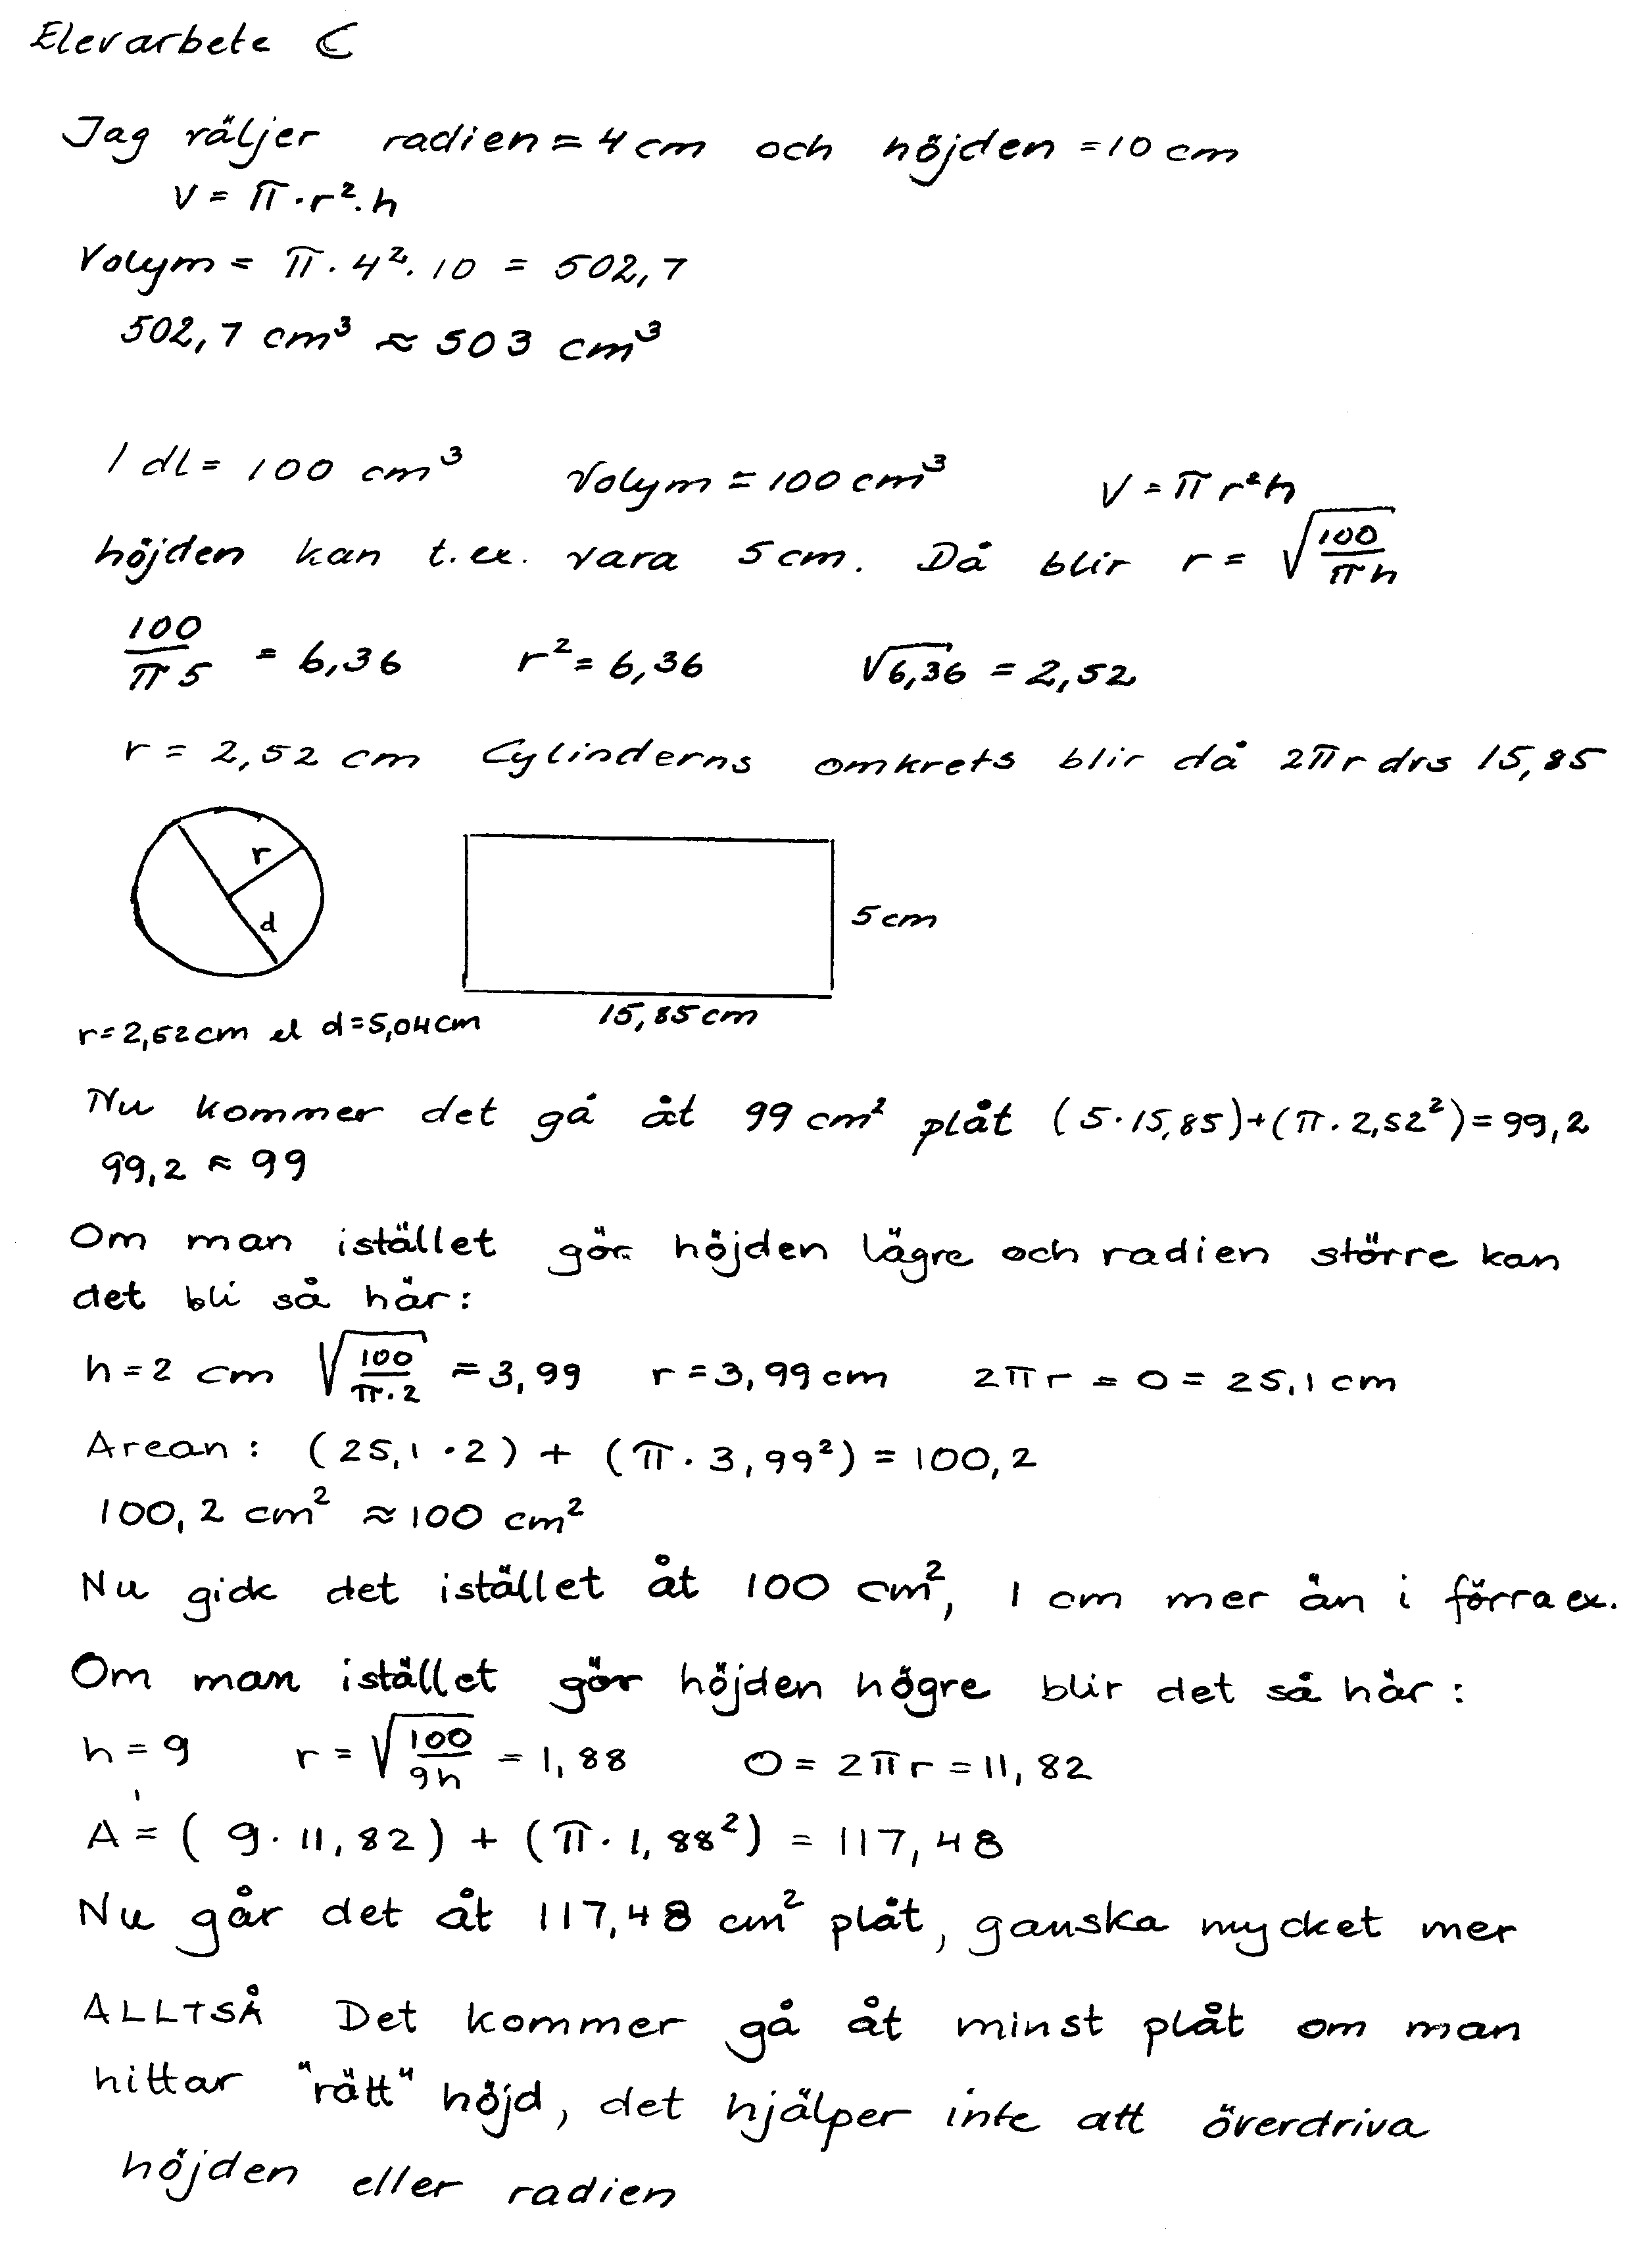 Elevarbete C
Jag väljer radien = 4 cm och höjden = 10 cm
V = π · r² · h
Volym = π · 4² · 10 = 502,7
502,7 cm³ ≈ 503 cm³
1 dl = 100 cm³ Volym = 100 cm³ V = π r² h
höjden kan t.ex. vara 5 cm. Då blir r = √(100/πh)
100/π5 = 6,36 r² = 6,36 √6,36 = 2,52
r = 2,52 cm Cylinderns omkrets blir då 2πr dvs 15,85
r
d
5 cm
15,85 cm
r = 2,52 cm el d = 5,04 cm
Nu kommer det gå åt 99 cm² plåt (5 · 15,85) + (π · 2,52²) = 99,2
99,2 ≈ 99
Om man istället gör höjden lägre och radien större kan
det bli så här:
h = 2 cm √(100/π·2) = 3,99 r = 3,99 cm 2πr = O = 25,1 cm
Arean: (25,1 · 2) + (π · 3,99²) = 100,2
100,2 cm² ≈ 100 cm²
Nu gick det istället åt 100 cm², 1 cm mer än i förra ex.
Om man istället gör höjden högre blir det så här:
h = 9 r = √(100/9h) = 1,88 O = 2πr = 11,82
A = (9 · 11,82) + (π · 1,88²) = 117,48
Nu går det åt 117,48 cm² plåt, ganska mycket mer
ALLTSÅ Det kommer gå åt minst plåt om man
hittar "rätt" höjd, det hjälper inte att överdriva
höjden eller radien